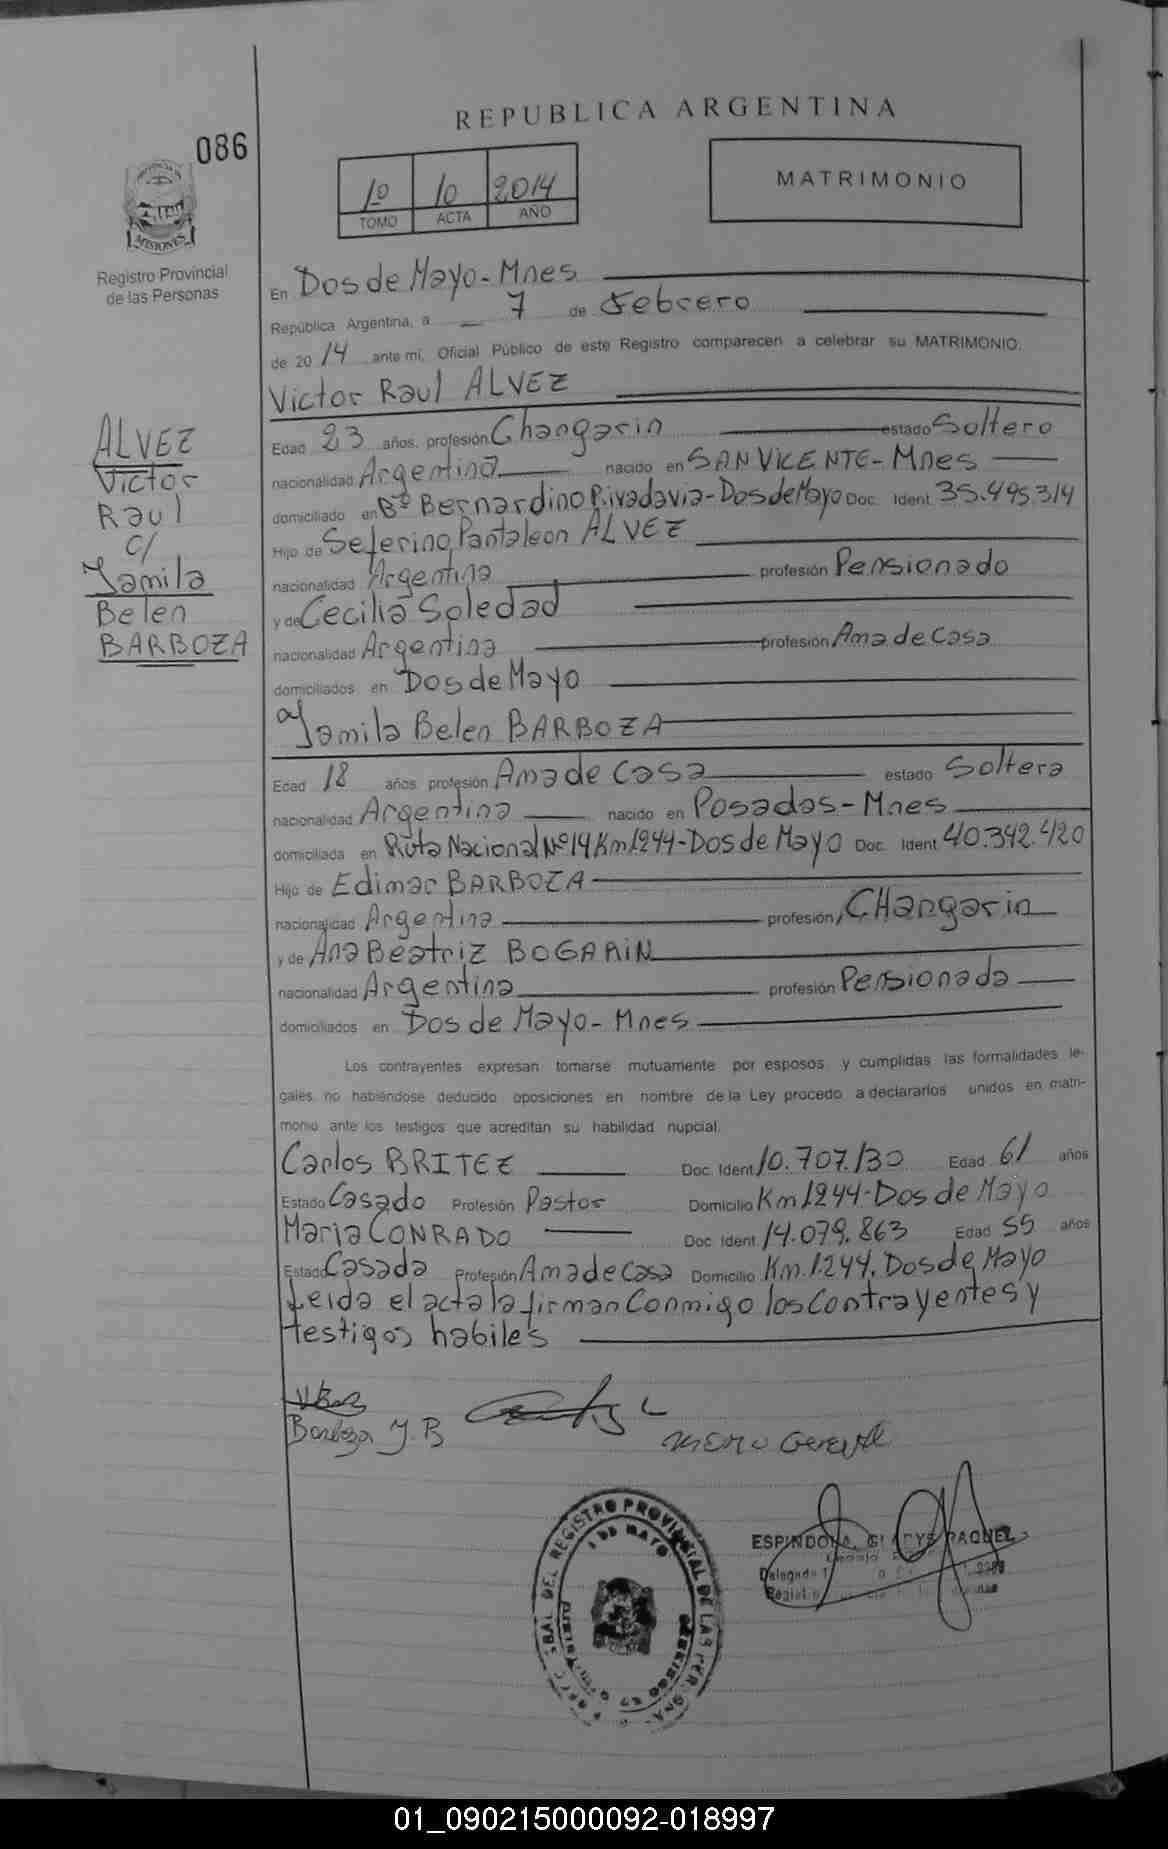 REPUBLICA ARGENTINA
086
1º 10 2014
TOMO ACTA AÑO
MATRIMONIO
PROVINCIA DE
MISIONES
Registro Provincial
de las Personas
En Dos de Mayo - Mnes
República Argentina, a 7 de Febrero
de 2014 ante mi, Oficial Público de este Registro comparecen a celebrar su MATRIMONIO.
Victor Raul ALVEZ
ALVEZ
Victor
Raul
C/
Yamila
Belen
BARBOZA
Edad 23 años, profesión Changarin estado Soltero
nacionalidad Argentina nacido en SAN VICENTE - Mnes
domiciliado en Bº Bernardino Rivadavia - Dos de Mayo Doc. Ident. 35.495.314
Hijo de Seferino Pantaleon ALVEZ
nacionalidad Argentina profesión Pensionado
y de Cecilia Soledad
nacionalidad Argentina profesión Ama de Casa
domiciliados en Dos de Mayo
Yamila Belen BARBOZA
Edad 18 años profesión Ama de Casa estado Soltera
nacionalidad Argentina nacido en Posadas - Mnes
domiciliada en Ruta Nacional Nº 14 Km 1244 - Dos de Mayo Doc. Ident. 40.342.420
Hijo de Edimar BARBOZA
nacionalidad Argentina profesión CHangarin
y de Ana Beatriz BOGARIN
nacionalidad Argentina profesión Pensionada
domiciliados en Dos de Mayo - Mnes
Los contrayentes expresan tomarse mutuamente por esposos y cumplidas las formalidades le-
gales no habiéndose deducido oposiciones en nombre de la Ley procedo a declararlos unidos en matri-
monio ante los testigos que acreditan su habilidad nupcial.
Carlos BRITEZ Doc. Ident. 10.707.130 Edad 61 años
Estado Casado Profesión Pastor Domicilio Km 1244 - Dos de Mayo
Maria CONRADO Doc. Ident. 14.079.863 Edad 55 años
Estado Casada Profesión Ama de Casa Domicilio Km. 1244. Dos de Mayo
Leida el acta la firman Conmigo los Contrayentes y
testigos habiles
Barboza Y. B
REGISTRO PROVINCIAL DE LAS
2 DE MAYO
ESPINDOLA, GLADYS RAQUEL
01_090215000092-018997